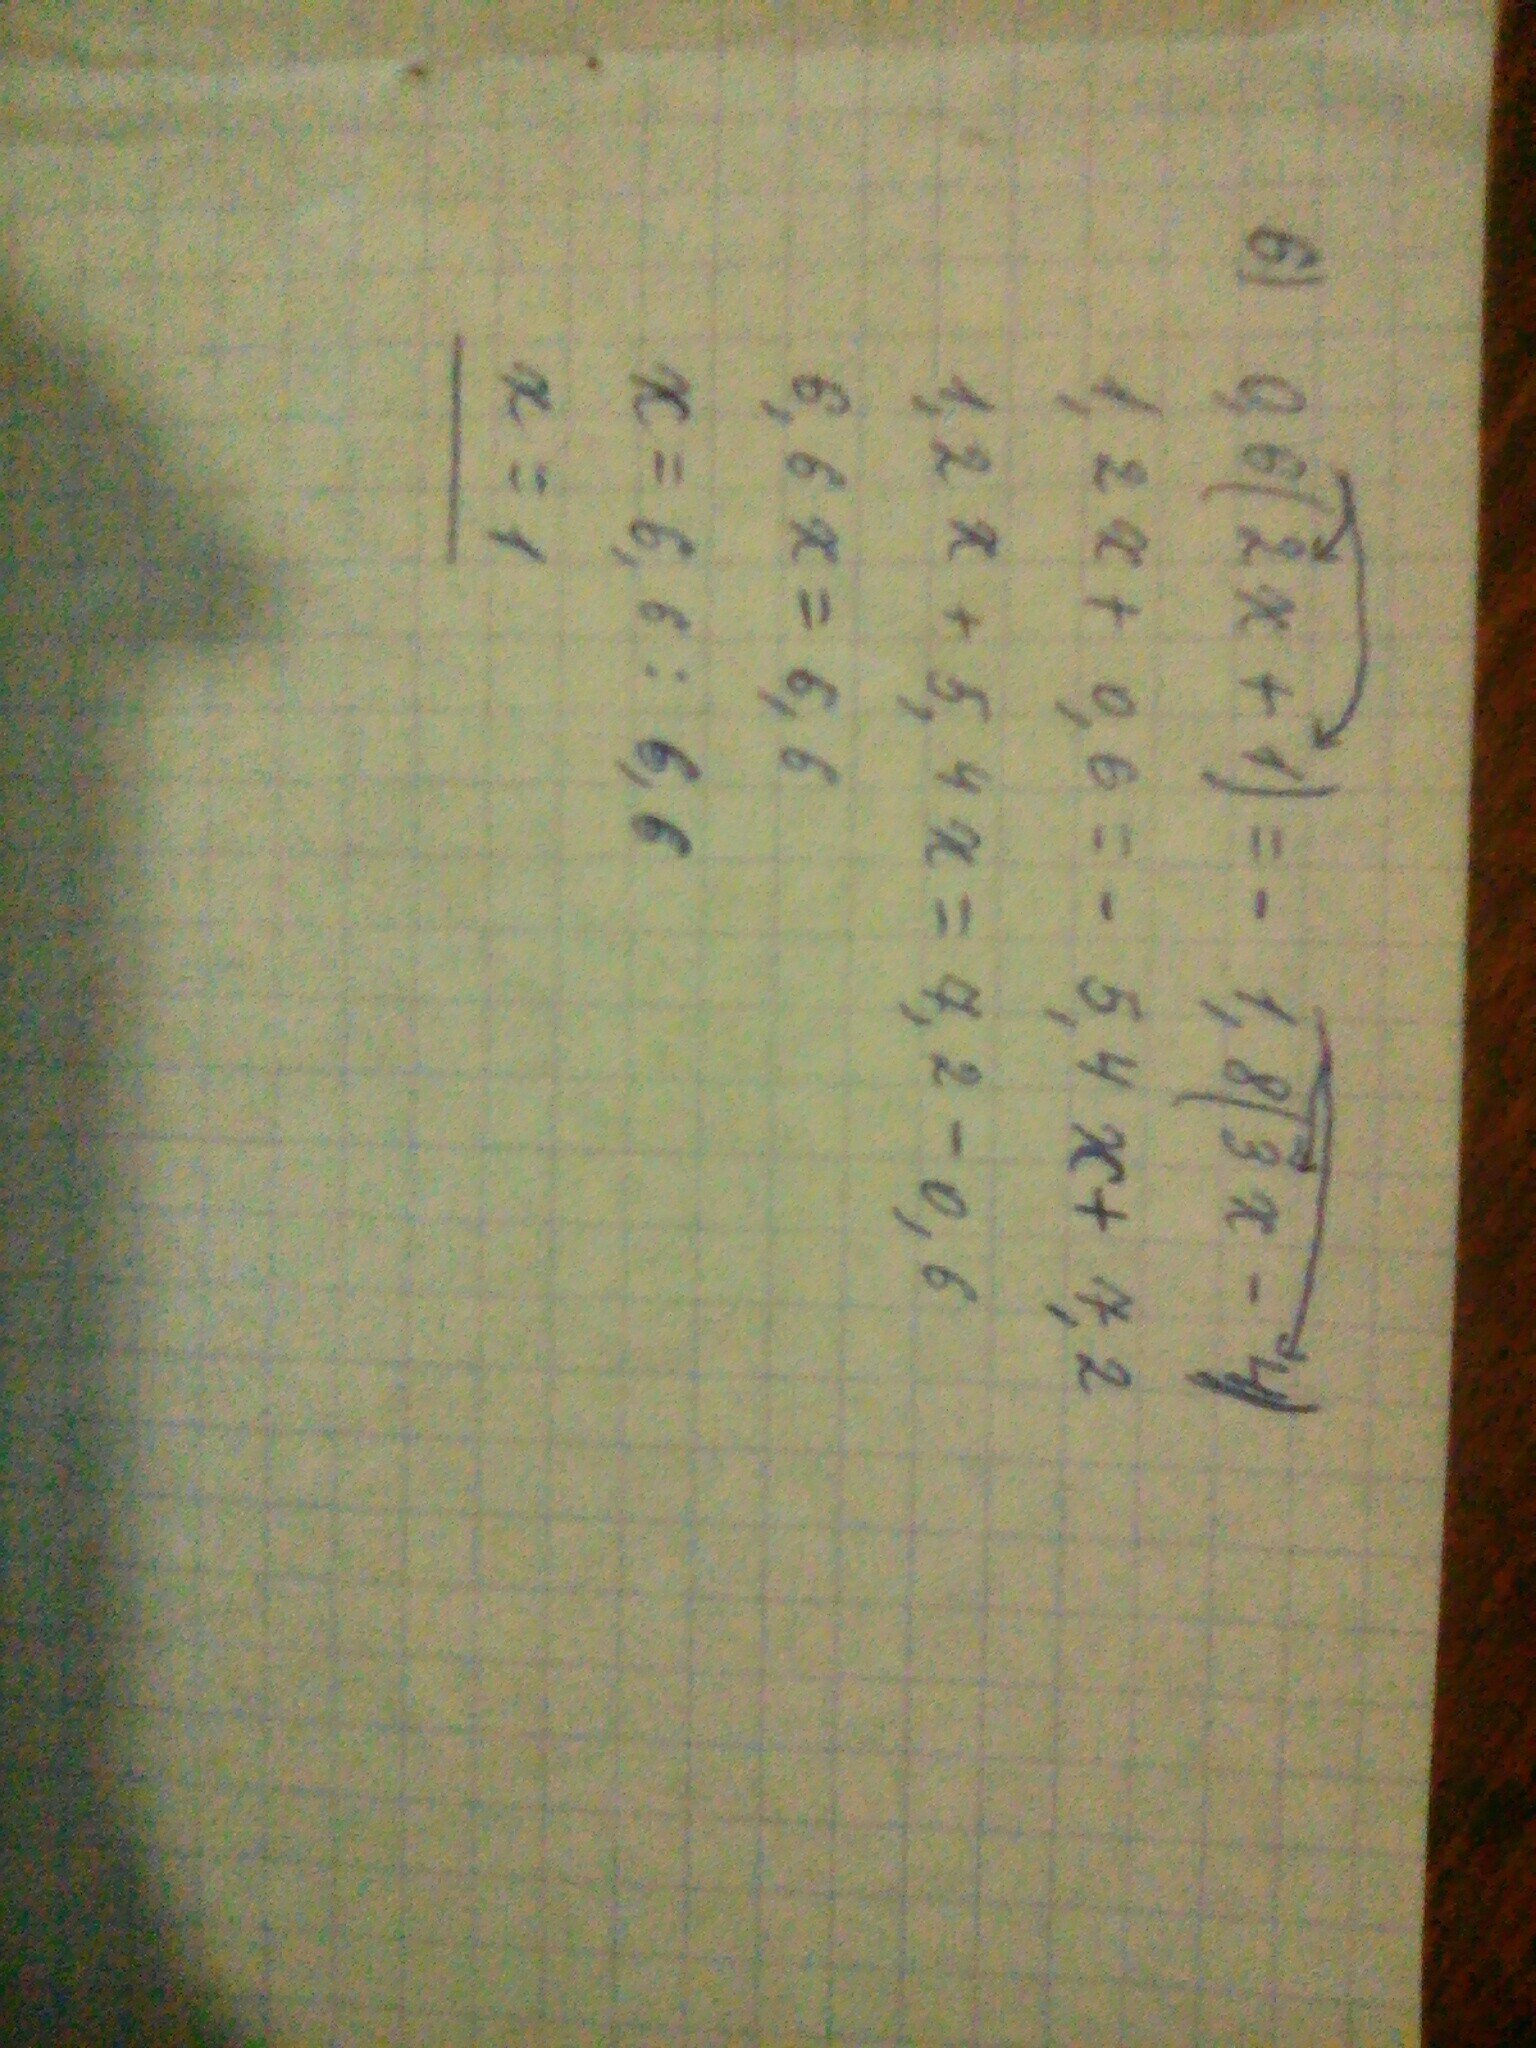 б) 0,6(2x+1)=-1,8(3x-4)
1,2x+0,6=-5,4x+7,2
1,2x+5,4x=7,2-0,6
6,6x=6,6
x=6,6:6,6
x=1